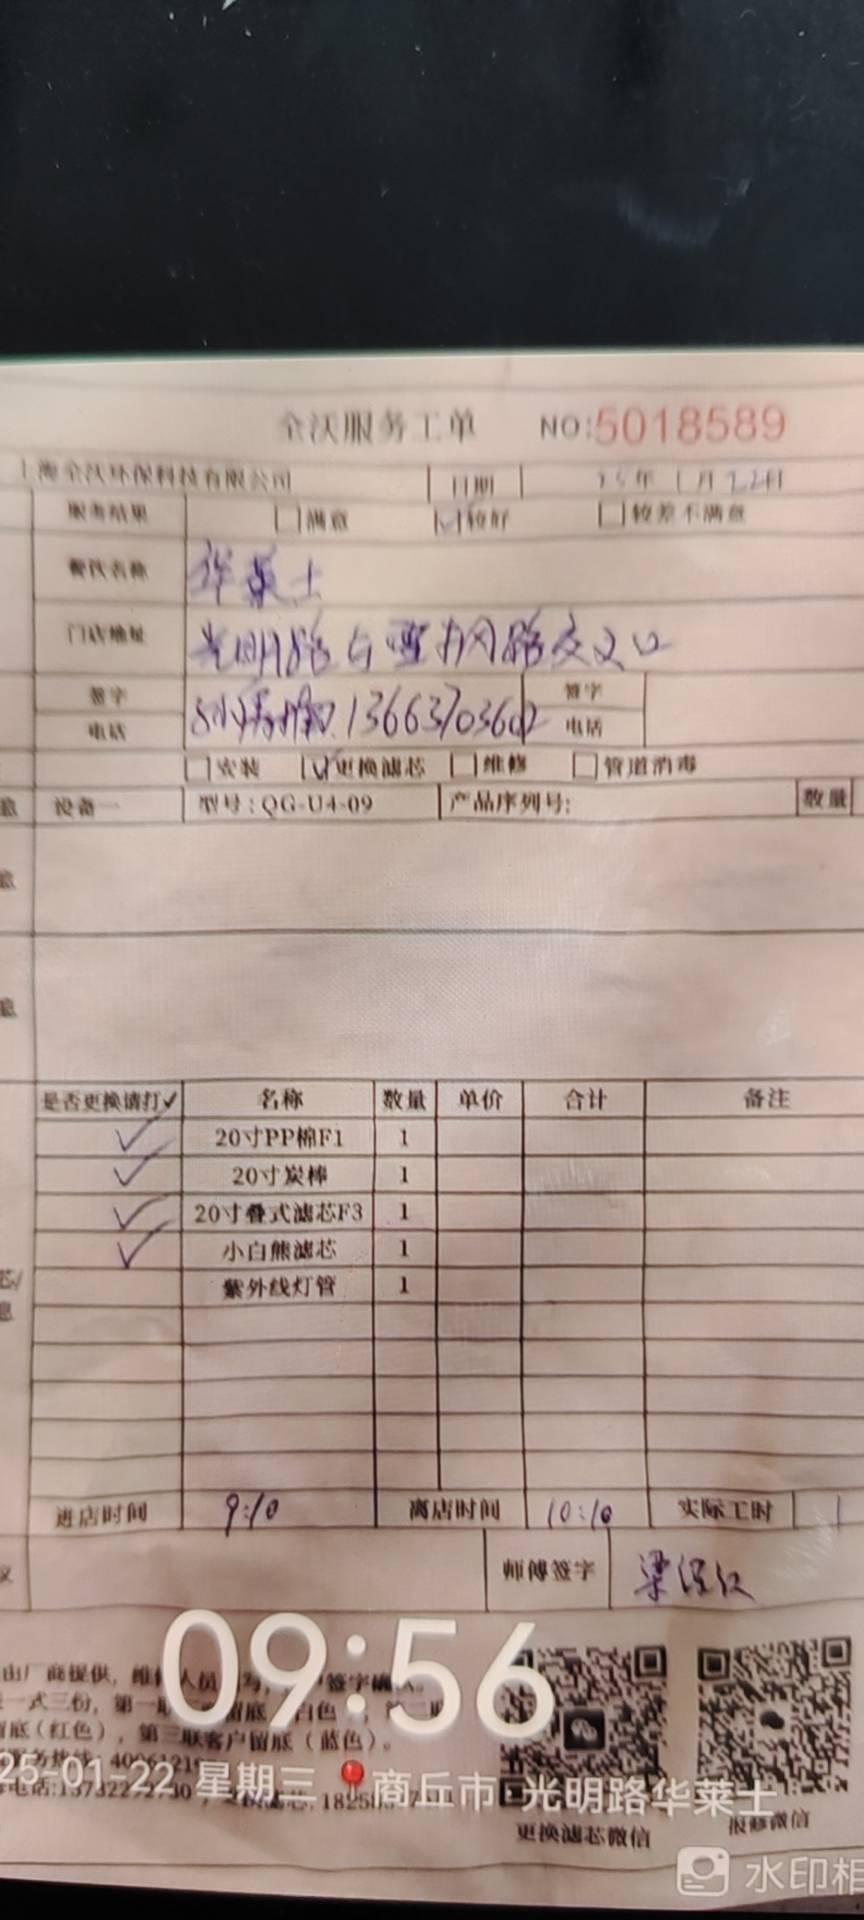 全沃服务工单 NO:5018589
上海全沃环保科技有限公司 日期 25年1月22日
服务结果 满意 较好 较差不满意
餐饮名称 华莱士
门店地址 光明路与 路交叉口
签字 签字
电话 13663703602 电话
安装 更换滤芯 维修 管道消毒
设备一 型号:QG-U4-09 产品序列号: 数量
是否更换请打✓ 名称 数量 单价 合计 备注
✓ 20寸PP棉F1 1
✓ 20寸炭棒 1
✓ 20寸叠式滤芯F3 1
✓ 小白熊滤芯 1
紫外线灯管 1
进店时间 9:10 离店时间 10:10 实际工时 1
师傅签字 梁
09:56
由厂商提供,维 人员 签字确
一式三份,第一联 留底 白色
留底(红色),第三联客户留底(蓝色)。
25-01-22 星期三 商丘市·光明路华莱士
更换滤芯微信 报修微信
水印相